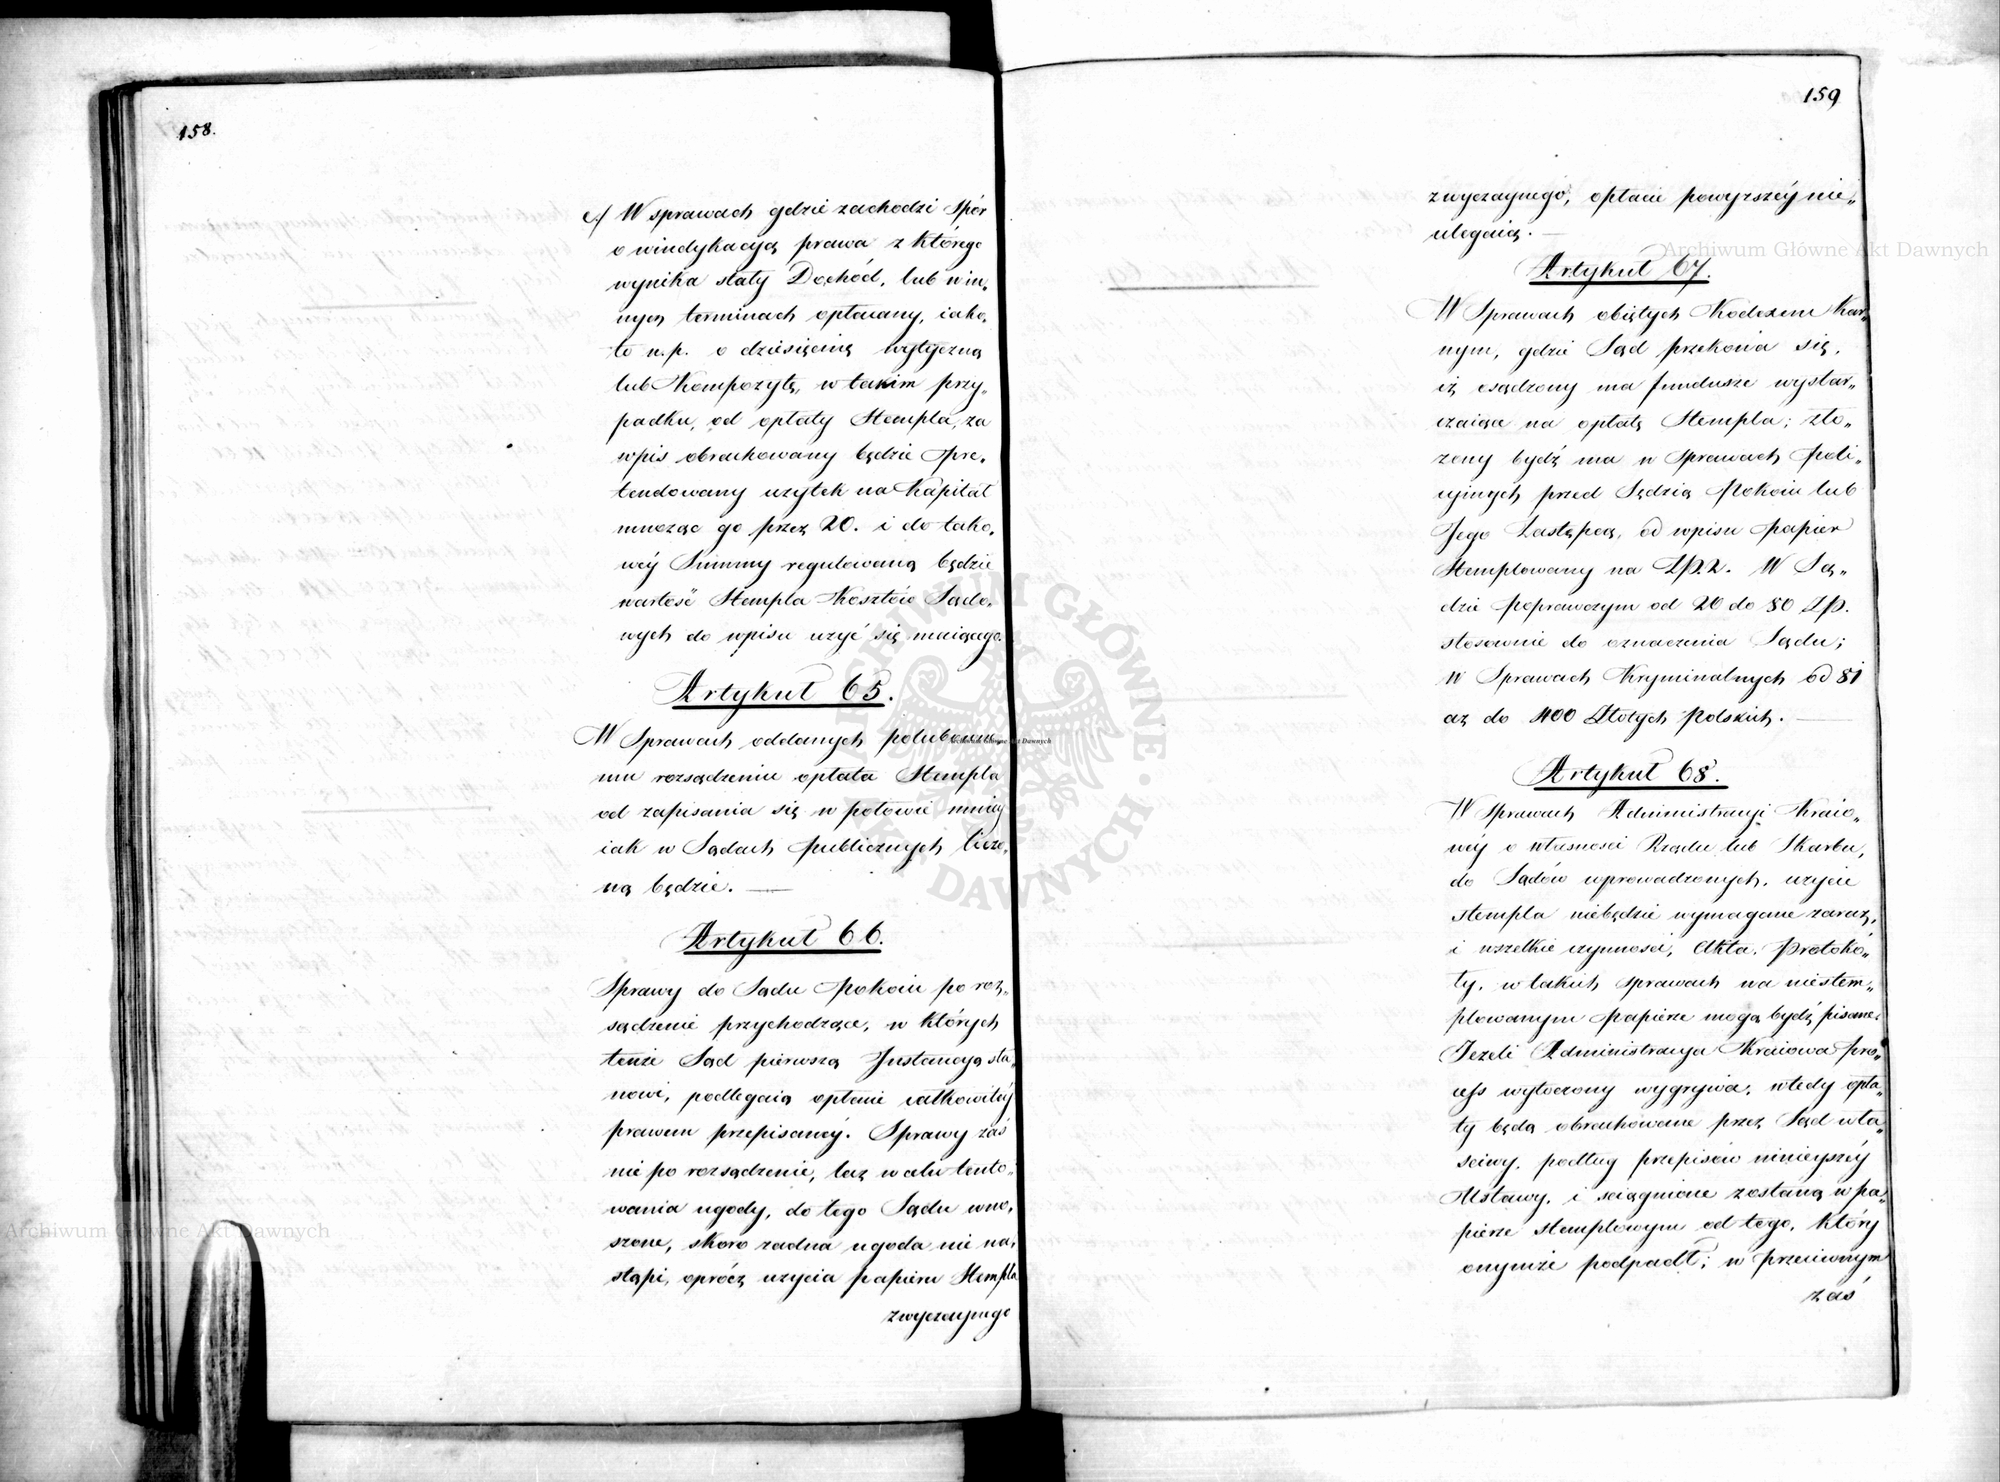 158.
c/ W sprawach gdzie zachodzi Spór
o windykacyą prawa z którego
wynika stały Dochód, lub win„
nych terminach opłacany, iako„
to n.p. o dziesięcinę wytyczną
lub Kompozytę, w takim przy„
padku, od opłaty Stempla, za
wpis obrachowany będzie Pre„
tendowany użytek na Kapitał
mnożąc go przez 20. i do tako„
wéy Summy regulowaną będzie
wartość Stempla Kosztów Sądo„
wych do wpisu użyć się maiącego.
Artykuł 65.
W Sprawach oddanych polubowne„
mu rozsądzeniu opłata Stempla
od zapisania się w połowie mniéy
iak w Sądach publicznych liczo„
ną będzie. —
Artykuł 66.
Sprawy do Sądu Pokoiu po roz„
sądzenie przychodzące, w których
tenże Sąd pierwszą Instancyą sta„
nowi, podlegaią opłacie całkowitéy
prawem przepisanéy. Sprawy zaś
nie po rozsądzenie, lecz w celu tento„
wania ugody, do tego Sądu wno„
szone, skoro żadna ugoda nie na„
stąpi, oprócz użycia papieru Stempla
zwyczaynego
159
zwyczaynego, opłacie powyższéy nie„
ulegaią. —
Artykuł 67.
W Sprawach obiętych Kodexem Kar„
nym, gdzie Sąd przekona się,
iż osądzony ma fundusze wystar„
czaiące na opłatę Stempla; zło„
żony bydź ma w Sprawach Poli„
cyinych przed Sędzią Pokoiu lub
Jego Zastępcą, od wpisu papier
Stemplowany na Zł. 2. W Są„
dzie Poprawczym od 20 do 80 Złp.
stosownie do oznaczenia Sądu;
w Sprawach Kryminalnych od 81
aż do 400 Złotych Polskich. —
Artykuł 68.
W Sprawach Administracyi Kraio„
wéy o własności Rządu lub Skarbu,
do Sądów wprowadzonych, użycie
stempla niebędzie wymagane zaraz,
i wszelkie czynności, Akta, Protokó„
ły, w takich sprawach na niestem„
plowanym Papierze mogą bydź pisane.
Jeżeli Administracya Kraiowa Pro„
cess wytoczony wygrywa, wtedy opła„
ty będą obrachowane przez Sąd wła„
ściwy, podług przepisów ninieyszéy
Ustawy, i ściągnione zostaną w pa„
pierze stemplowym od tego, który
onymże podpadł; w przeciwnym
zaś
Archiwum Główne Akt Dawnych
Archiwum Główne Akt Dawnych
Archiwum Główne Akt Dawnych
ARCHIWUM GŁÓWNE AKT DAWNYCH